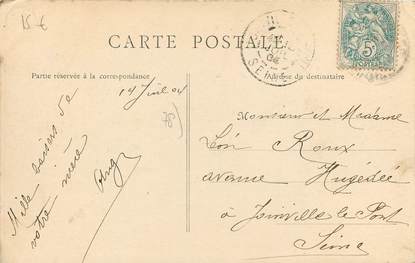 15 €
CARTE POSTALE
Partie réservée à la correspondance
Adresse du destinataire
14 Juil 04
78)
Mille baisers de
votre mère
Ang
Monsieur et Madame
Léon Roux
avenue Hugédée
à Joinville le Pont
Seine
5c